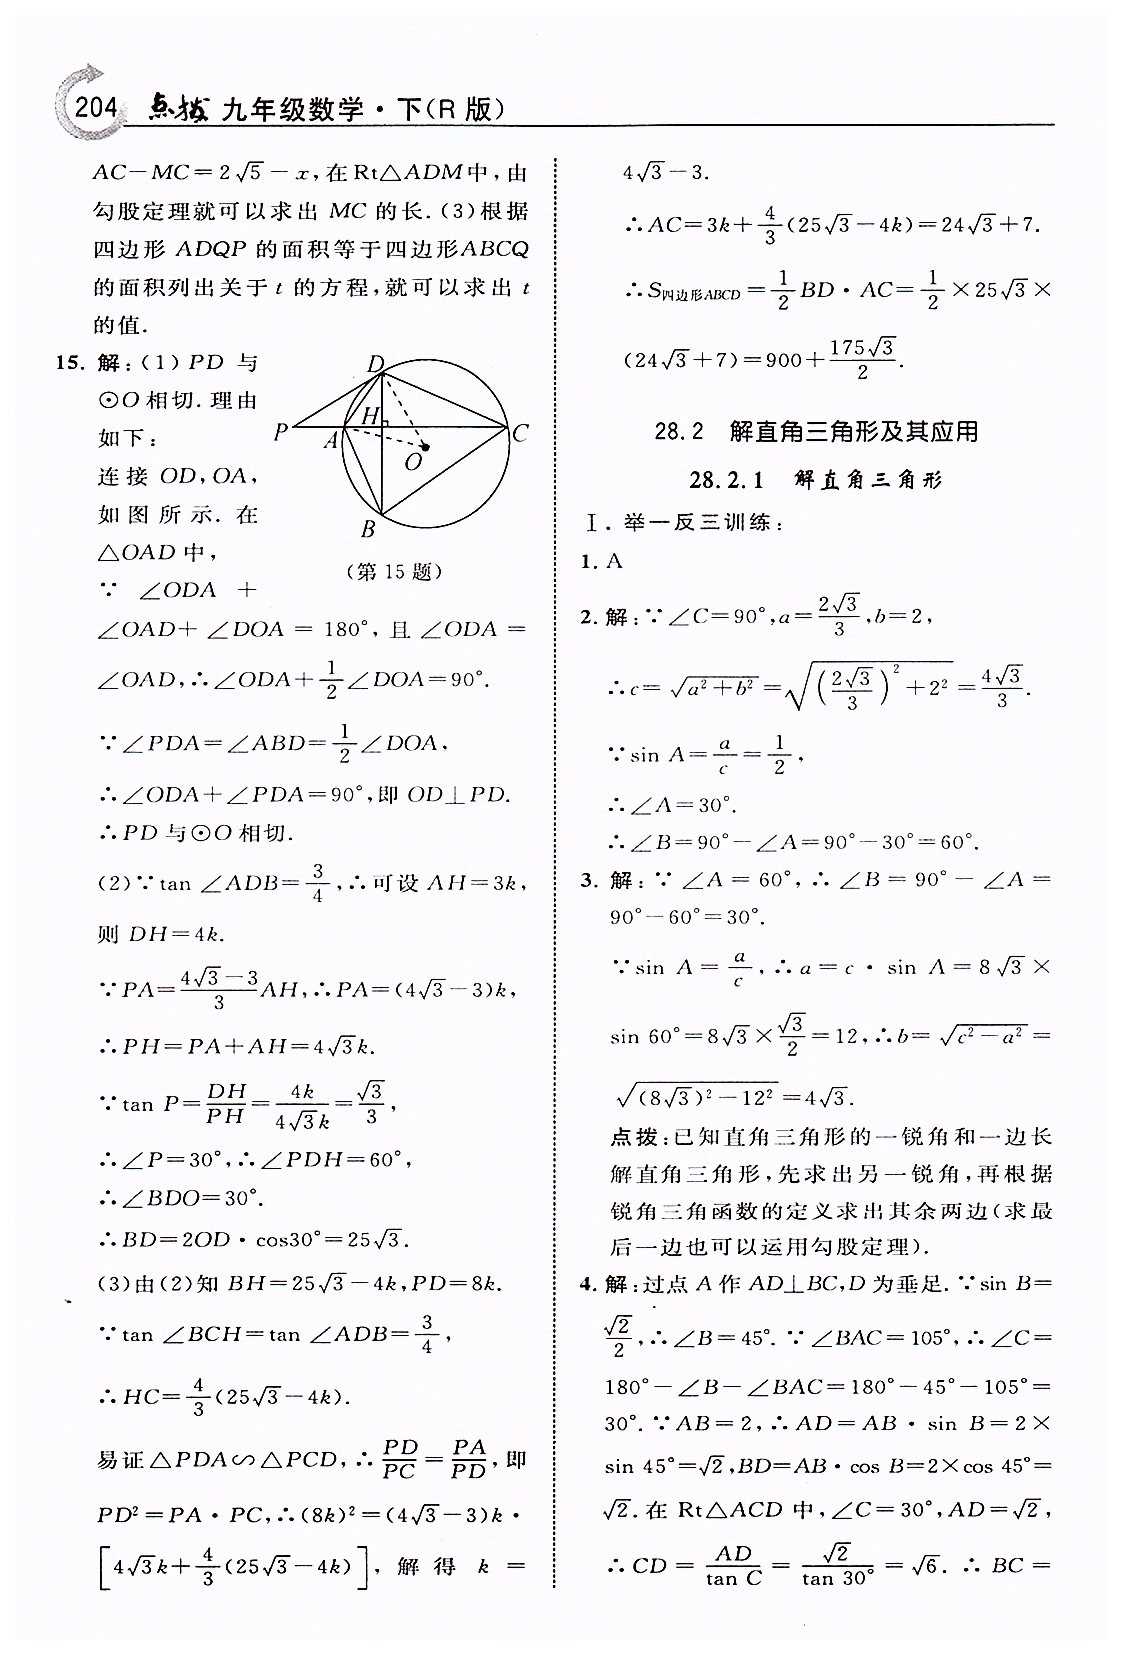 204 点拨 九年级数学·下(R版)
AC－MC＝2√5－x,在Rt△ADM中,由
勾股定理就可以求出 MC 的长.(3)根据
四边形 ADQP 的面积等于四边形ABCQ
的面积列出关于 t 的方程,就可以求出 t
的值.
15. 解:(1) PD 与
⊙O相切.理由
如下:
连接 OD,OA,
如图所示.在
△OAD中,
∵ ∠ODA ＋
D
P
H
A
C
O
B
(第15题)
∠OAD＋∠DOA ＝ 180°,且∠ODA ＝
∠OAD,∴∠ODA＋1/2∠DOA＝90°.
∵∠PDA＝∠ABD＝1/2∠DOA,
∴∠ODA＋∠PDA＝90°,即OD⊥PD.
∴PD与⊙O相切.
(2)∵tan ∠ADB＝3/4,∴可设AH＝3k,
则 DH＝4k.
∵PA＝(4√3－3)/3 AH,∴PA＝(4√3－3)k,
∴PH＝PA＋AH＝4√3k.
∵tan P＝DH/PH＝4k/(4√3k)＝√3/3,
∴∠P＝30°,∴∠PDH＝60°,
∴∠BDO＝30°.
∴BD＝2OD·cos30°＝25√3.
(3)由(2)知BH＝25√3－4k,PD＝8k.
∵tan ∠BCH＝tan ∠ADB＝3/4,
∴HC＝4/3(25√3－4k).
易证△PDA∽△PCD,∴PD/PC＝PA/PD,即
PD²＝PA·PC,∴(8k)²＝(4√3－3)k·
[4√3k＋4/3(25√3－4k)],解得 k ＝
4√3－3.
∴AC＝3k＋4/3(25√3－4k)＝24√3＋7.
∴S四边形ABCD＝1/2BD·AC＝1/2×25√3×
(24√3＋7)＝900＋175√3/2.
28.2 解直角三角形及其应用
28.2.1 解直角三角形
Ⅰ.举一反三训练:
1. A
2. 解:∵∠C＝90°,a＝2√3/3,b＝2,
∴c＝√(a²＋b²)＝√((2√3/3)²＋2²)＝4√3/3.
∵sin A＝a/c＝1/2,
∴∠A＝30°.
∴∠B＝90°－∠A＝90°－30°＝60°.
3. 解:∵∠A ＝ 60°,∴∠B ＝ 90°－∠A ＝
90°－60°＝30°.
∵sin A＝a/c,∴a＝c·sin A＝8√3×
sin 60°＝8√3×√3/2＝12,∴b＝√(c²－a²)＝
√((8√3)²－12²)＝4√3.
点拨:已知直角三角形的一锐角和一边长
解直角三角形,先求出另一锐角,再根据
锐角三角函数的定义求出其余两边(求最
后一边也可以运用勾股定理).
4. 解:过点A作AD⊥BC,D为垂足.∵sin B＝
√2/2,∴∠B＝45°.∵∠BAC＝105°,∴∠C＝
180°－∠B－∠BAC＝180°－45°－105°＝
30°.∵AB＝2,∴AD＝AB·sin B＝2×
sin 45°＝√2,BD＝AB·cos B＝2×cos 45°＝
√2.在Rt△ACD中,∠C＝30°,AD＝√2,
∴CD＝AD/tan C＝√2/tan 30°＝√6.∴BC＝